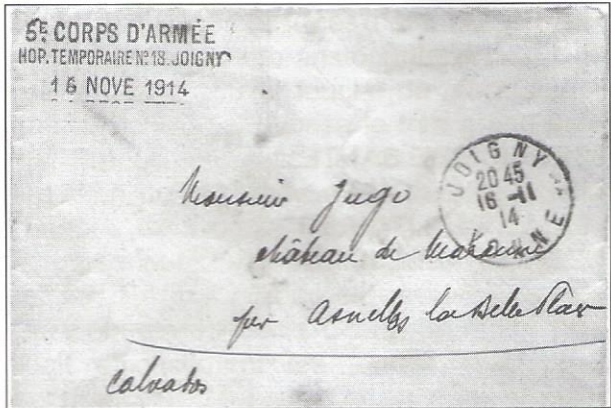 5E CORPS D'ARMÉE
HOP. TEMPORAIRE No 18. JOIGNY
16 NOVE 1914
JOIGNY
20 45
16 -11
14
YONNE
Monsieur Jugo
château de
par Asnelles la Belle Plage
Calvados